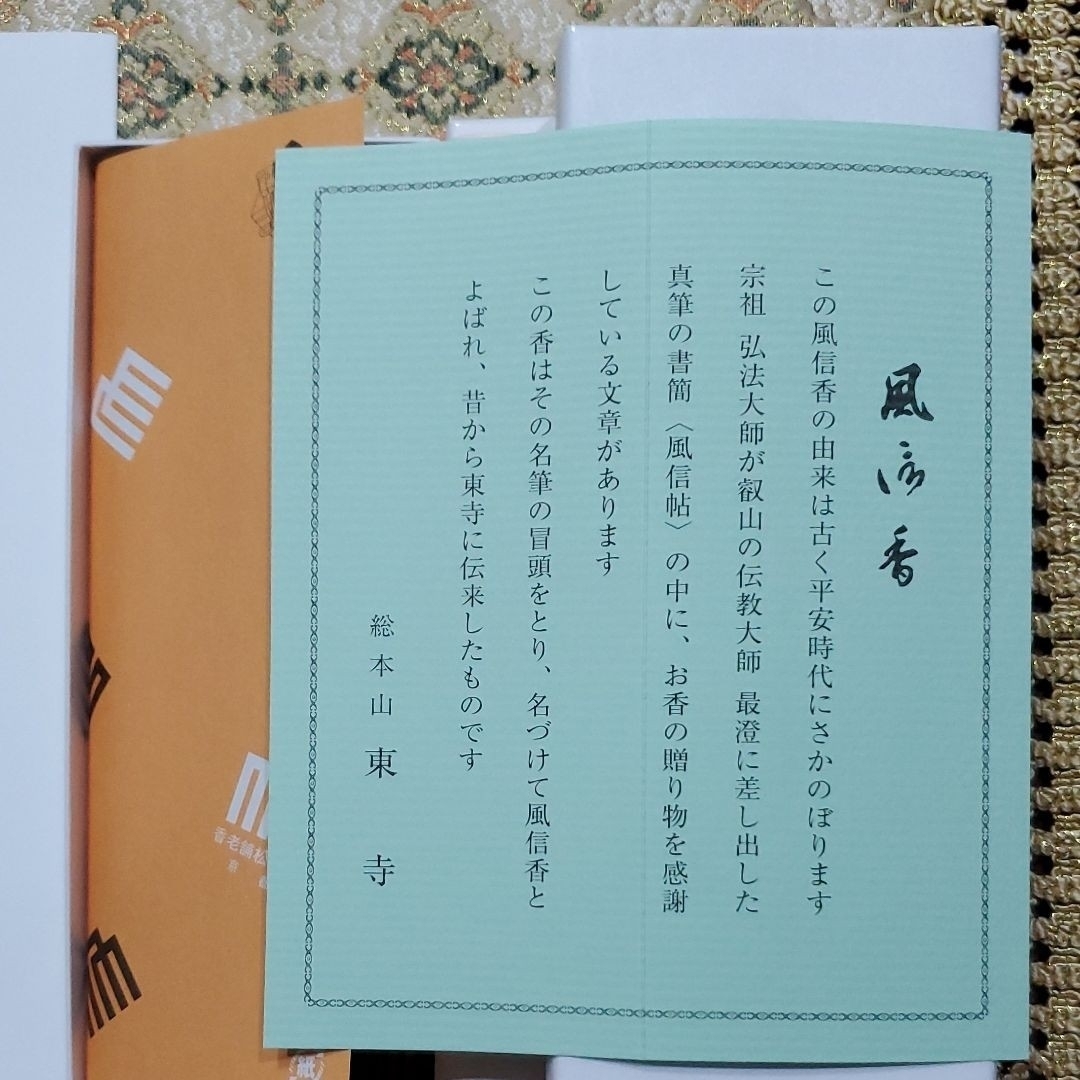 風信香
この風信香の由来は古く平安時代にさかのぼります
宗祖 弘法大師が叡山の伝教大師 最澄に差し出した
真筆の書簡〈風信帖〉の中に、お香の贈り物を感謝
している文章があります
この香はその名筆の冒頭をとり、名づけて風信香と
よばれ、昔から東寺に伝来したものです
総本山 東寺
香老舗松
京都
紙